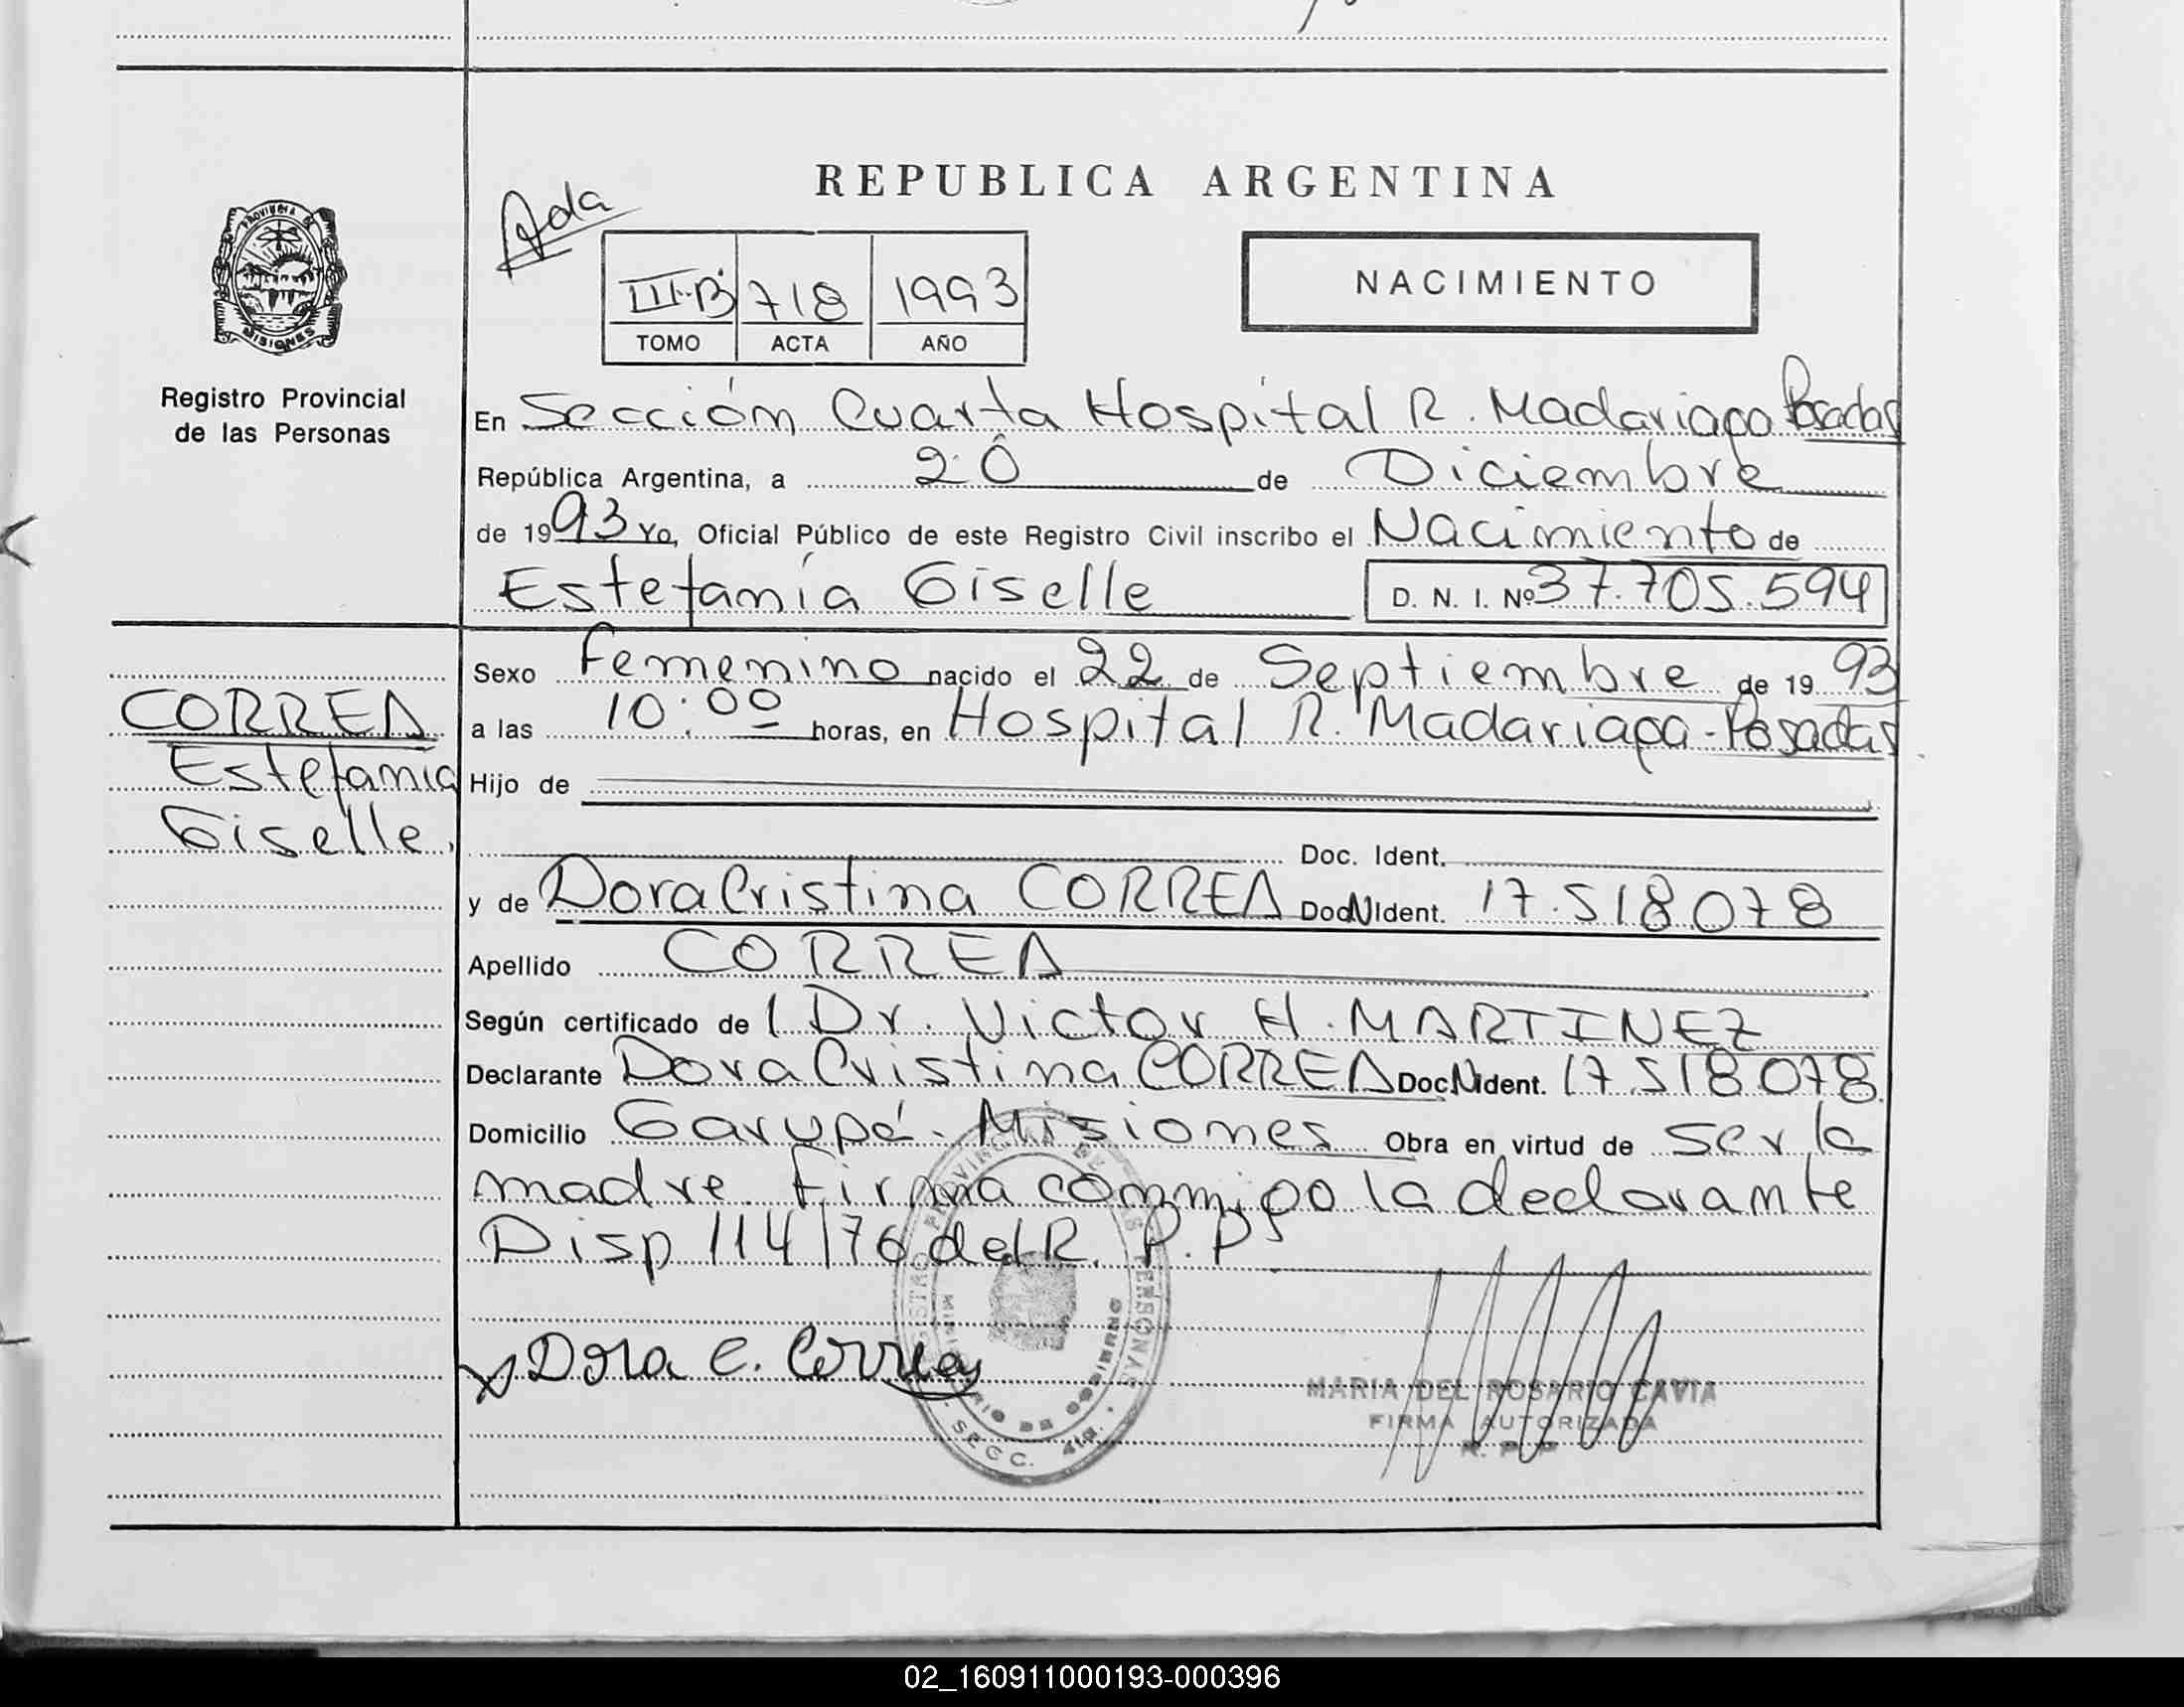 REPUBLICA ARGENTINA
Ada
PROVINCIA DE
MISIONES
Registro Provincial
de las Personas
III-B 718 1993
TOMO ACTA AÑO
NACIMIENTO
En Sección Cuarta Hospital R. Madariaga Posadas
República Argentina, a 20 de Diciembre
de 1993 Yo, Oficial Público de este Registro Civil inscribo el Nacimiento de
Estefanía Giselle D. N. I. Nº 37.705.594
CORREA
Estefania
Giselle.
Sexo Femenino nacido el 22 de Septiembre de 1993
a las 10:00 horas, en Hospital R. Madariaga - Posadas
Hijo de
Doc. Ident.
y de Dora Cristina CORREA Doc N Ident. 17.518.078
Apellido CORREA
Según certificado de l Dr. Victor H. MARTINEZ
Declarante Dora Cristina CORREA Doc N Ident. 17.518.078
Domicilio Garupá - Misiones Obra en virtud de ser la
madre. Firma conmigo la declarante
Disp 114/76 del R. P. P.
x Dora C. Correa
MARIA DEL ROSARIO CAVIA
FIRMA AUTORIZADA
R. P. P
SECC. 4ta.
02_160911000193-000396